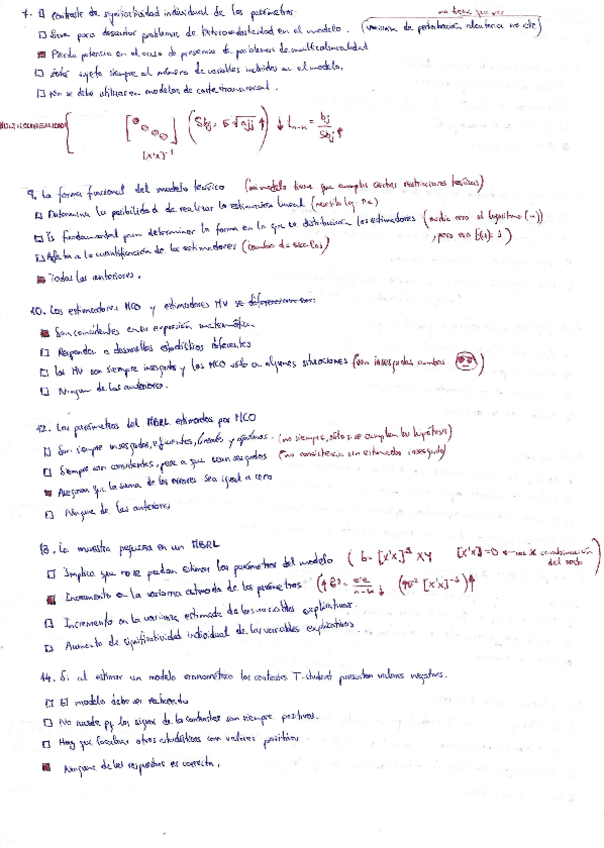 7. El contraste de significatividad individual de los parámetros: no tiene que ver
□ Sirve para descartar problemas de heteroscedasticidad en el modelo. (varianza de perturbación aleatoria no cte)
■ Pierde potencia en el caso de presencia de problemas de multicolinealidad
□ Está sujeto siempre al número de variables incluidas en el modelo.
□ No se debe utilizar en modelos de corte transversal.
MULTICOLINEALIDAD
[X'X]⁻¹ (Sbj = σ √ajj ↑) ↓ tn-k = bj / Sbj ↑
9. La forma funcional del modelo teórico (mi modelo tiene que cumplir ciertas restricciones teóricas)
□ Determina la posibilidad de realizar la estimación lineal
□ Es fundamental para determinar la forma en la que se distribuirán los estimadores
□ Afecta a la cuantificación de los estimadores (cambio de escalas)
■ Todas las anteriores.
10. Los estimadores MCO y estimadores MV
■ Son coincidentes en su expresión matemática
□ Responden a desarrollos estadísticos diferentes
□ Los MV son siempre insesgados y los MCO sólo en algunas situaciones (son insesgados ambos)
□ Ninguna de las anteriores.
12. Los parámetros del MBRL estimados por MCO
□ Son siempre insesgados, eficientes, lineales y óptimos. (no siempre, sólo si se cumplen las hipótesis)
□ Siempre son consistentes, pese a que sean sesgados (no consistencia sin estimador insesgado)
■ Aseguran que la suma de los errores sea igual a cero
□ Ninguna de las anteriores
13. La muestra pequeña en un MBRL
□ Implica que no se puedan estimar los parámetros del modelo ( b= [X'X]⁻¹ X'Y [X'X]=0 ← una X combinación del resto )
■ Incremento en la varianza estimada de los parámetros (↑σ̂² = e'e / n-k ↓ (↑σ̂² [X'X]⁻¹)↑
□ Incremento en la varianza estimada de las variables explicativas.
□ Aumento de significatividad individual de las variables explicativas
14. Si al estimar un modelo econométrico los contrastes T-student presentan valores negativos.
□ El modelo debe ser
□ No puede pq los signos de los contrastes son siempre positivos.
□ Hay que localizar otros estadísticos con valores positivos
■ Ninguna de las respuestas es correcta.